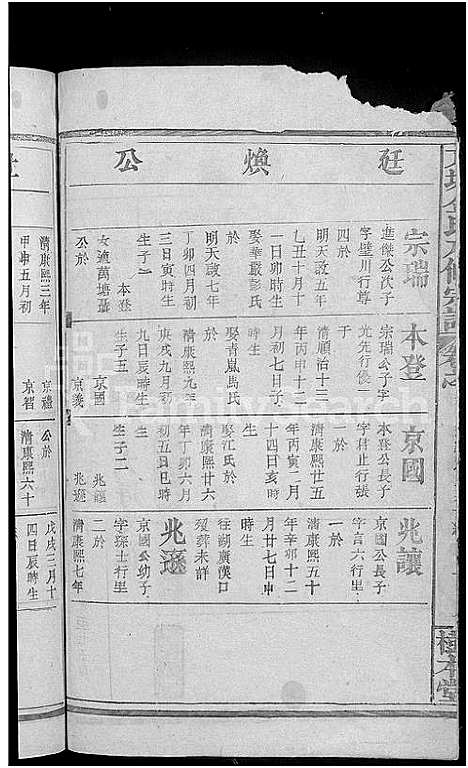 公煥廷
宗瑞
進傑公次子
字璧川行尊
四於
明天啟五年
乙丑十月十
一日卯時生
娶華巖彭氏
於
明天啟七年
丁卯四月初
三日寅時生
生子二
本登
女適萬塘聶
公於
清康熙三年
甲申五月初
本登
宗瑞公子字
文先行俊一
于
清順治十三
年丙申十二
月初七日子
時生
娶青嵐馬氏
於
清康熙九年
庚戌九月初
九日辰時生
生子五
京國
京義
京禮
京智
京國
本登公長子
字君止行張
一於
清康熙廿五
年丙寅二月
十四日亥時
生
娶江氏於
清康熙廿六
年丁卯六月
初五日巳時
生子二
兆讓
兆遜
公於
清康熙六十
兆讓
京國公長子
字言六行里
一於
清康熙五十
年辛卯十二
月廿七日申
時生
往湖廣漢口
娶葬未詳
兆遜
京國公幼子
字琢士行里
二於
清康熙七年
戊戌三月十
四日辰時生
桂本堂
FamilySearch